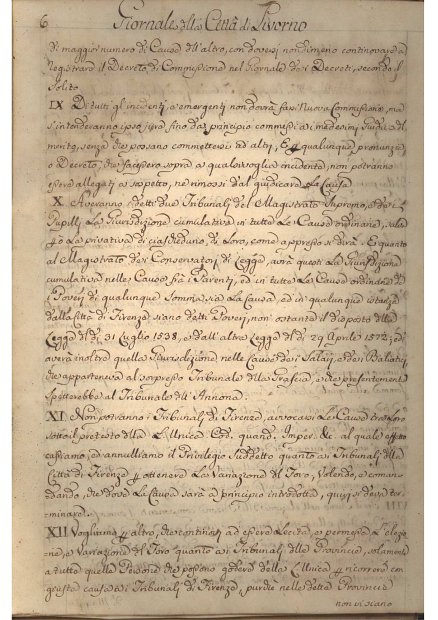 6 Giornale della Città di Livorno
di maggior numero di Cause dell'altro, con doversi nondimeno continovare a
registrare il Decreto di Commissione nel Giornale dei Decreti, secondo il
solito.
IX Di tutti gl'incidenti, e emergenti non dovrà farsi Nuova Commissione, ma
s'intenderanno ipso jure fino da principio commessi ai medesimi Giudici al
mento, senza che possano commettersi ad altri, E qualunque pronunzia,
o Decreto, che facessero sopra a qualsivoglia incidente, non potranno
essere allegati a sospetto, ne rimossi dal giudicare La Causa.
X. Averanno i detti due Tribunali del Magistrato Supremo, e de i
Pupilli La Giurisdizione cumulativa in tutte Le Cause ordinarie, salva
però La privativa di ciascheduno di Loro, come appresso si dirà. E quanto
al Magistrato dei Conservatori di Legge, avrà questi La Giurisdizione
cumulativa nelle Cause fra i Parenti, ed in tutte Le Cause ordinarie de
i Poveri di qualunque Somma sia La Causa, ed in qualunque istanza
della Città di Firenze siano detti Poveri, non ostante il disposto della
Legge del dì 31 Luglio 1538, e dall'altra Legge del dì 29 Aprile 1572, ed
averà inoltre quella Giurisdizione nelle Cause dei Salari, e dei Baliatici,
che apparteneva al soppresso Tribunale della Grascia, e che presentemente
spetterebbe al Tribunale dell'Annona.
XI Non potranno i Tribunali di Firenze avvocarsi Le Cause
sotto il pretesto della L. Unica Cod. quand. Imper. &c. al quale effetto
cassiamo, ed annulliamo il Privilegio suddetto quanto ai Tribunali della
Città di Firenze per ottenere La Variazione del Foro, Volendo, e coman-
dando, che dove La Causa sarà da principio introdotta, quivi si deva ter-
minare.
XII Vogliamo per altro, che continovi ad essere Lecita, e permessa L'elezio-
ne, e Variazione del Foro quanto ai Tribunali delle Provincie, solamente
a tutte quelle Persone che possono godere della L. Unica per ricorrere con
giusta causa ai Tribunali di Firenze, purchè nelle dette Provincie
non vi siano